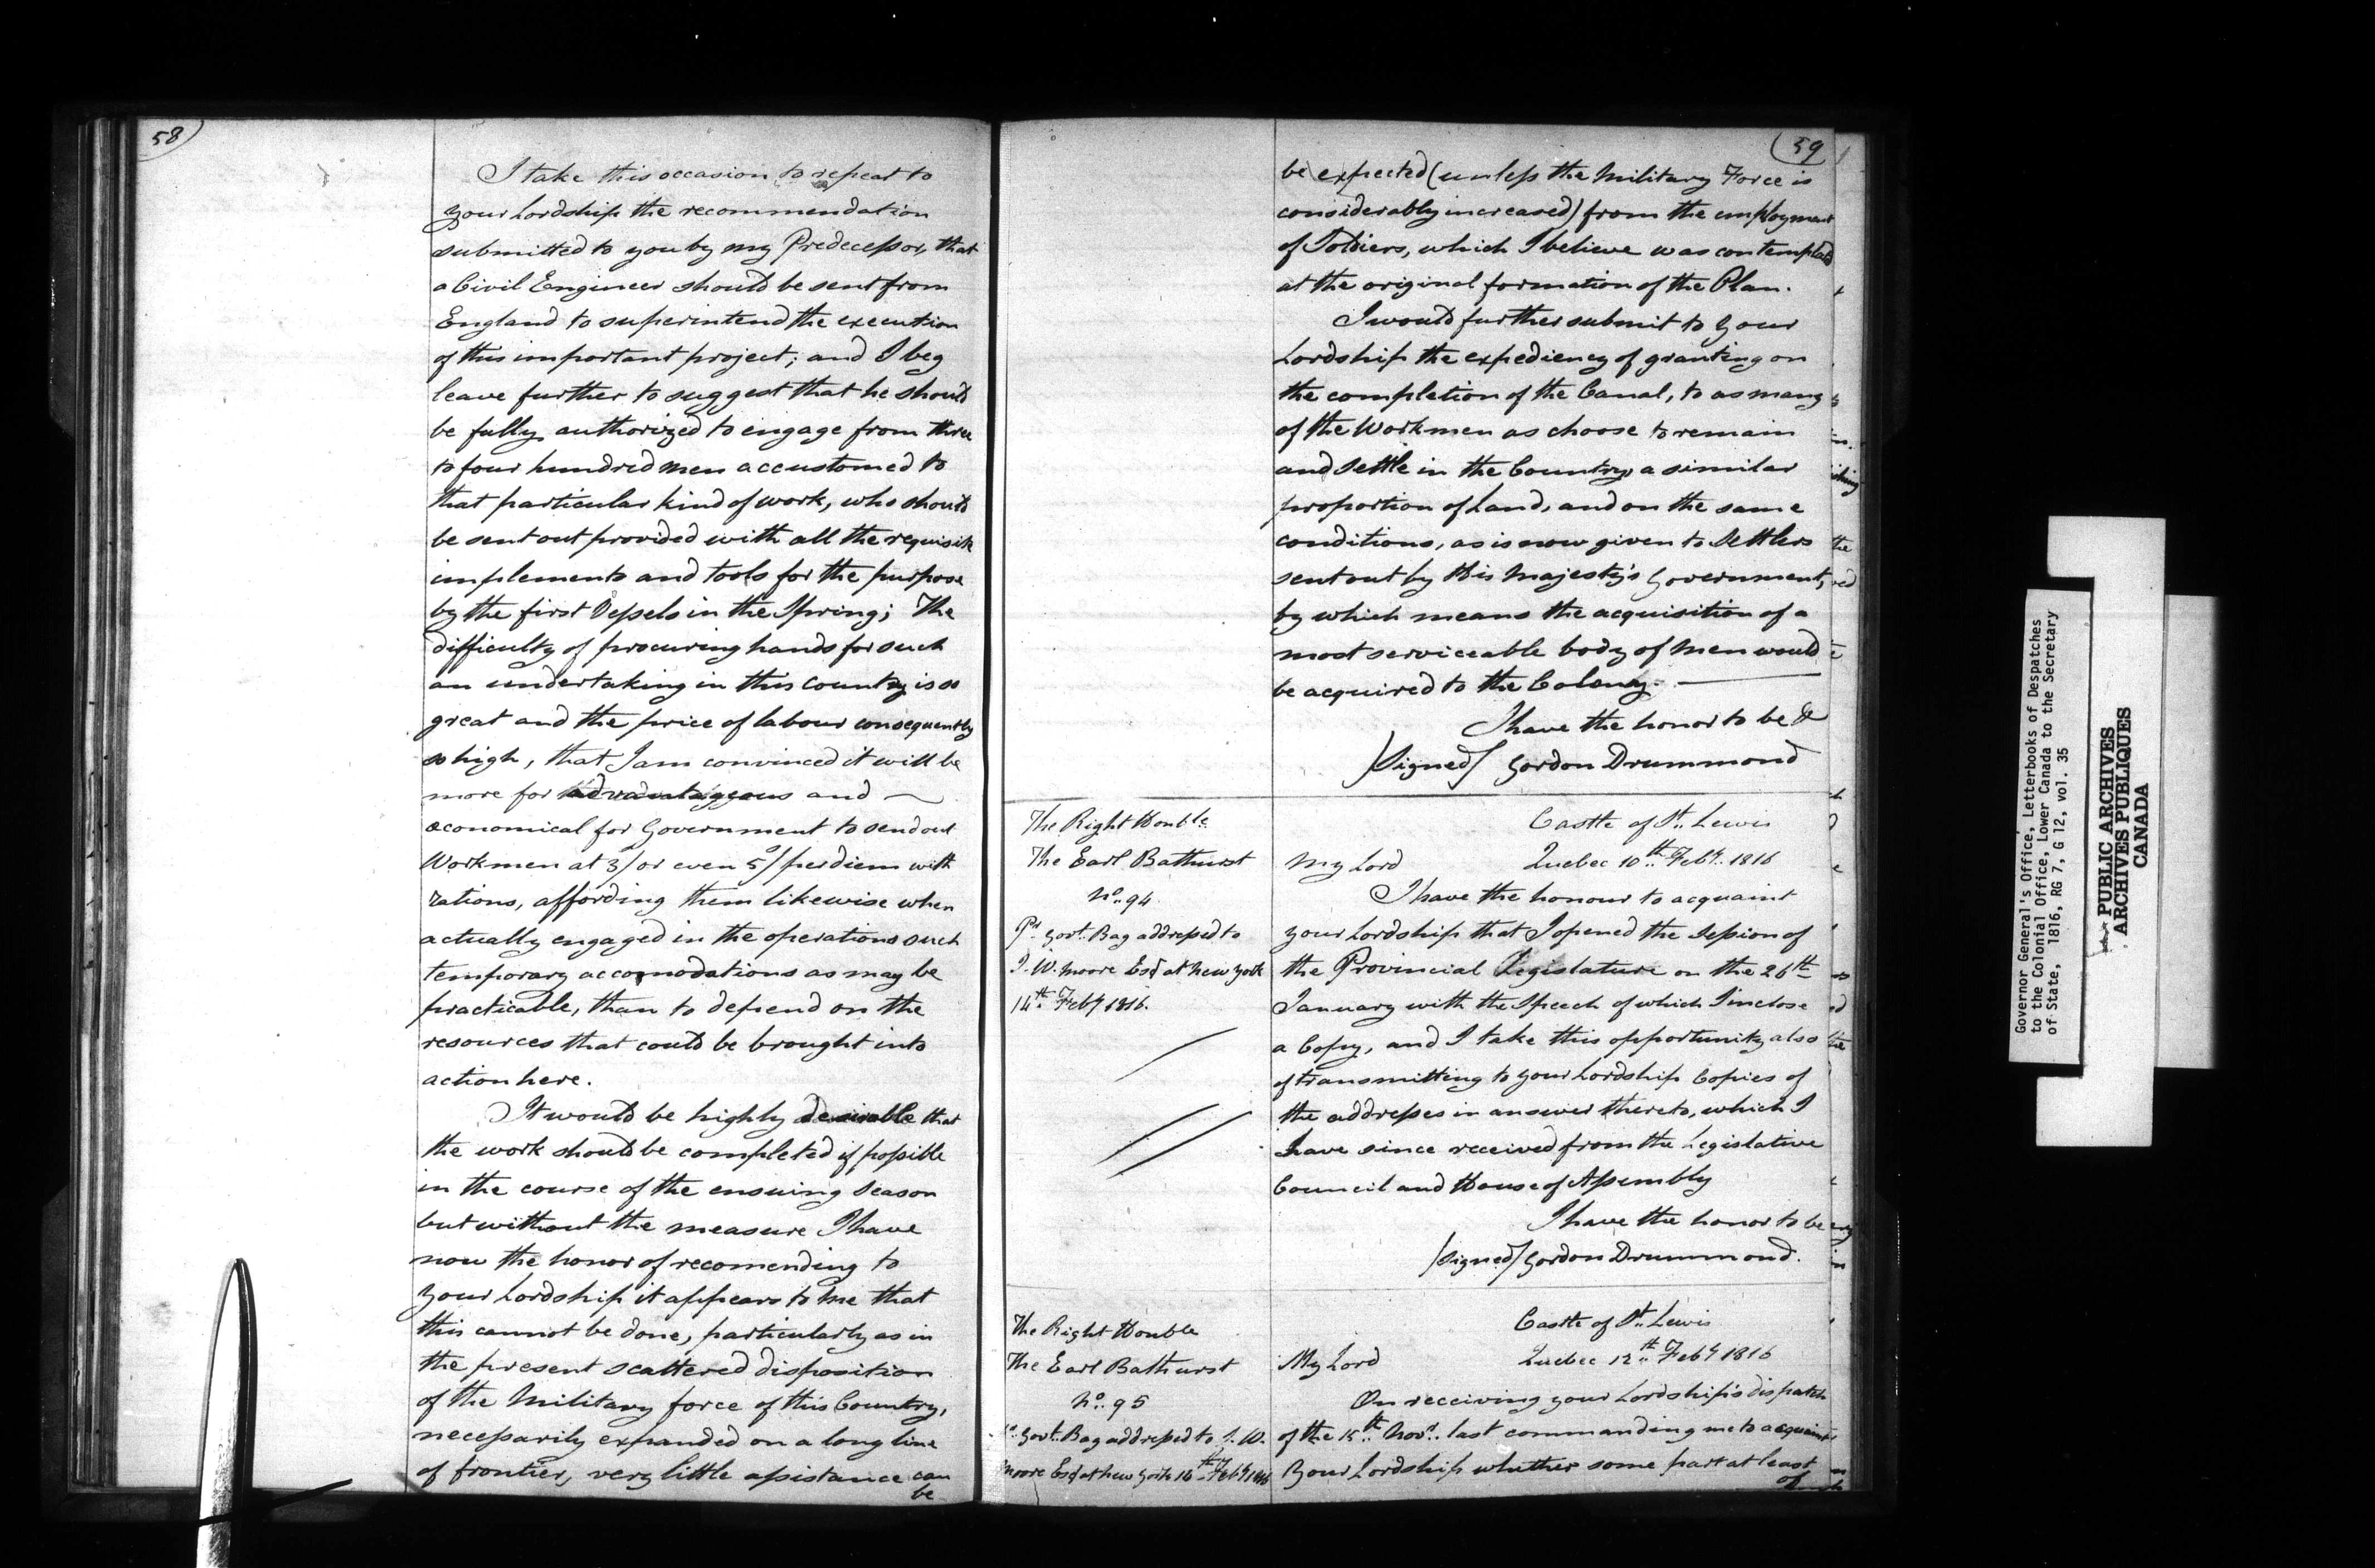 58
I take this occasion to repeat to
your Lordship the recommendation
submitted to you by my Predecessor, that
a Civil Engineer should be sent from
England to superintend the execution
of this important project; and I beg
leave further to suggest that he should
be fully authorized to engage from three
to four hundred men accustomed to
that particular kind of work, who should
be sent out provided with all the requisite
implements and tools for the purpose
by the first Vessels in the Spring; The
difficulty of procuring hands for such
an undertaking in this country is so
great and the price of labour consequently
so high, that I am convinced it will be
more for advantageous and
oeconomical for Government to send out
Workmen at 3/ or even 5/ per diem with
rations, affording them likewise when
actually engaged in the operations such
temporary accomodations as may be
practicable, than to depend on the
resources that could be brought into
action here.
It would be highly desirable that
the work should be completed if possible
in the course of the ensuing Season
but without the measure I have
now the honor of recomending to
your Lordship it appears to me that
this cannot be done, particularly as in
the present scattered disposition
of the Military force of this Country,
necessarily expanded on a long line
of frontier, very little assistance can
be
59
be expected (unless the Military Force is
considerably increased) from the employment
of Soldiers, which I believe was contemplated
at the original formation of the Plan.
I would further submit to your
Lordship the expediency of granting on
the completion of the Canal, to as many
of the Workmen as choose to remain
and Settle in the Country, a similar
proportion of Land, and on the same
conditions, as is now given to Settlers
sent out by His Majesty's Government,
by which means the acquisition of a
most serviceable body of Men would
be acquired to the Colony.
I have the honor to be &
/Signed/ Gordon Drummond
The Right Honble
The Earl Bathurst
No. 94
Pr. Govt. Bag addressed to
I. W. Moore Esqr at New York
14th Feby 1816.
Castle of St. Lewis
My Lord Quebec 10th Feby. 1816
I have the honour to acquaint
your Lordship that I opened the Session of
the Provincial Legislature on the 26th
January with the Speech of which I inclose
a Copy, and I take this opportunity also
of transmitting to your Lordship Copies of
the addresses in answer thereto, which I
have since received from the Legislative
Council and House of Assembly
I have the honor to be
/signed/ Gordon Drummond.
The Right Honble
The Earl Bathurst
No. 95
Govt. Bag addressed to I. W.
Moore Esqr at New York 16th Feby 1816
Castle of St. Lewis
My Lord Quebec 12th Feby 1816
On receiving your Lordship's dispatch
of the 15th Novr. last commanding me to acquaint
Your Lordship whether some part at least
of
Governor General's Office, Letterbooks of Despatches
to the Colonial Office, Lower Canada to the Secretary
of State, 1816, RG 7, G 12, vol. 35
PUBLIC ARCHIVES
ARCHIVES PUBLIQUES
CANADA